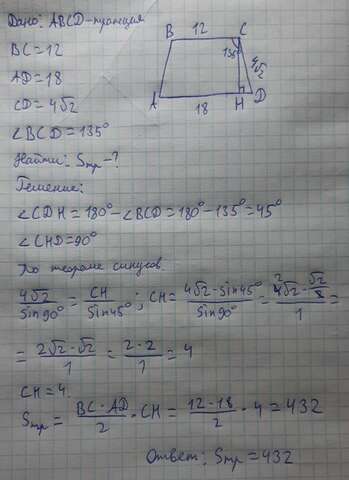 Дано: ABCD-трапеция
BC=12
AD=18
CD=4√2
∠BCD=135°
Найти: Sтр-?
Решение:
B 12 C
135°
4√2
A 18 H D
∠CDH=180°-∠BCD=180°-135°=45°
∠CHD=90°
По теореме синусов
4√2/sin90° = CH/sin45°, CH = 4√2·sin45°/sin90° = 4√2·√2/2 / 1 =
= 2√2·√2/1 = 2·2/1 = 4
CH=4.
Sтр = BC·AD/2 · CH = 12·18/2 · 4 = 432
Ответ: Sтр=432